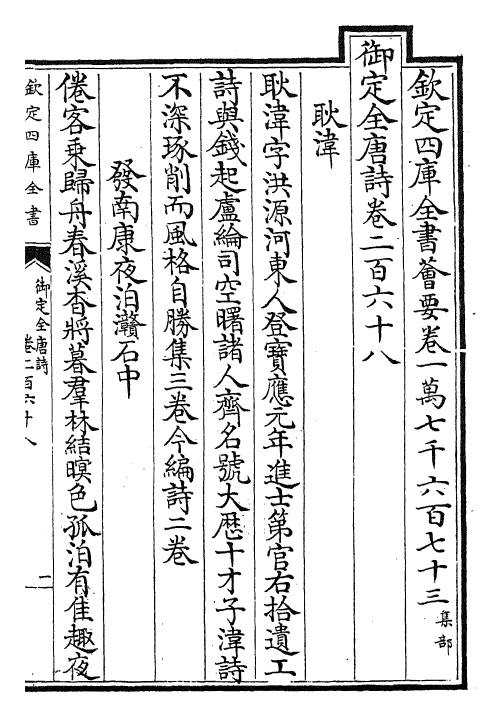 欽定四庫全書薈要卷一萬七千六百七十三 集部
御定全唐詩卷二百六十八
耿湋
耿湋字洪源河東人登寶應元年進士第官右拾遺工
詩與錢起盧綸司空曙諸人齊名號大厯十才子湋詩
不深琢削而風格自勝集三卷今編詩二卷
發南康夜泊灨石中
倦客乗歸舟春溪杳將暮羣林結暝色孤泊有佳趣夜
欽定四庫全書
御定全唐詩
卷二百六十八
一